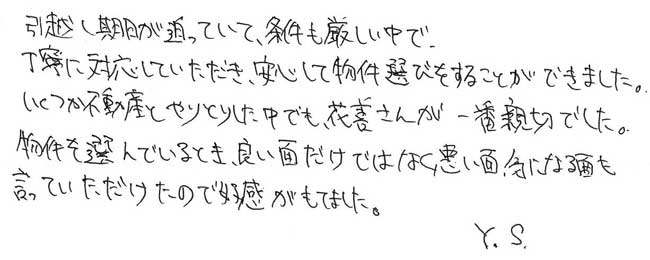 引越し期日が迫っていて、条件も厳しい中で、
丁寧に対応していただき、安心して物件選びをすることができました。
いくつか不動産とやりとりした中でも、花喜さんが一番親切でした。
物件を選んでいるとき、良い面だけではなく、悪い面、気になる面も
言っていただけたので好感がもてました。
Y. S.